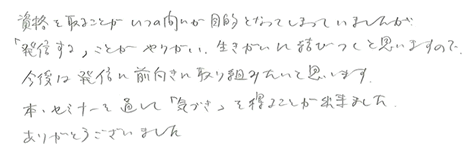 資格を取ることがいつの間にか目的となってしまっていましたが
「発信する」ことがやりがい、生きがいに結びつくと思いますので、
今後は発信に前向きに取り組みたいと思います。
本・セミナーを通して「気づき」を得ることが出来ました。
ありがとうございました